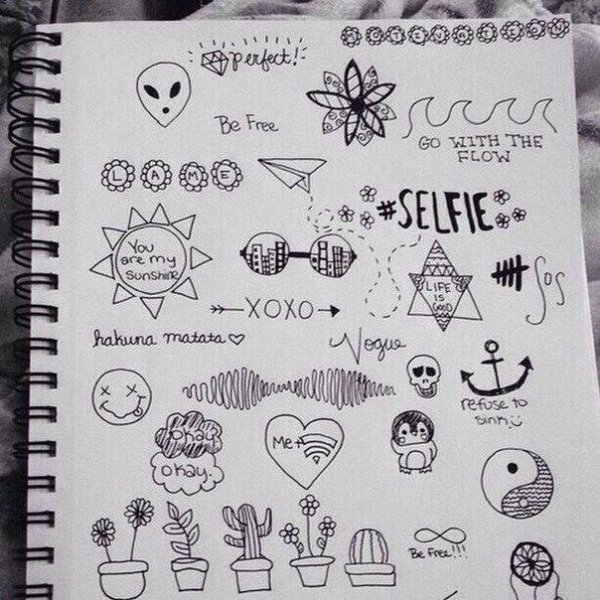 perfect!
Be Free
GO WITH THE
FLOW
LAME
#SELFIE
You
are my
sunshine
LIFE
IS
GOOD
sos
XOXO
hakuna matata ♡
Vogue
refuse to
sink
okay
okay.
Me +
Be free!!!